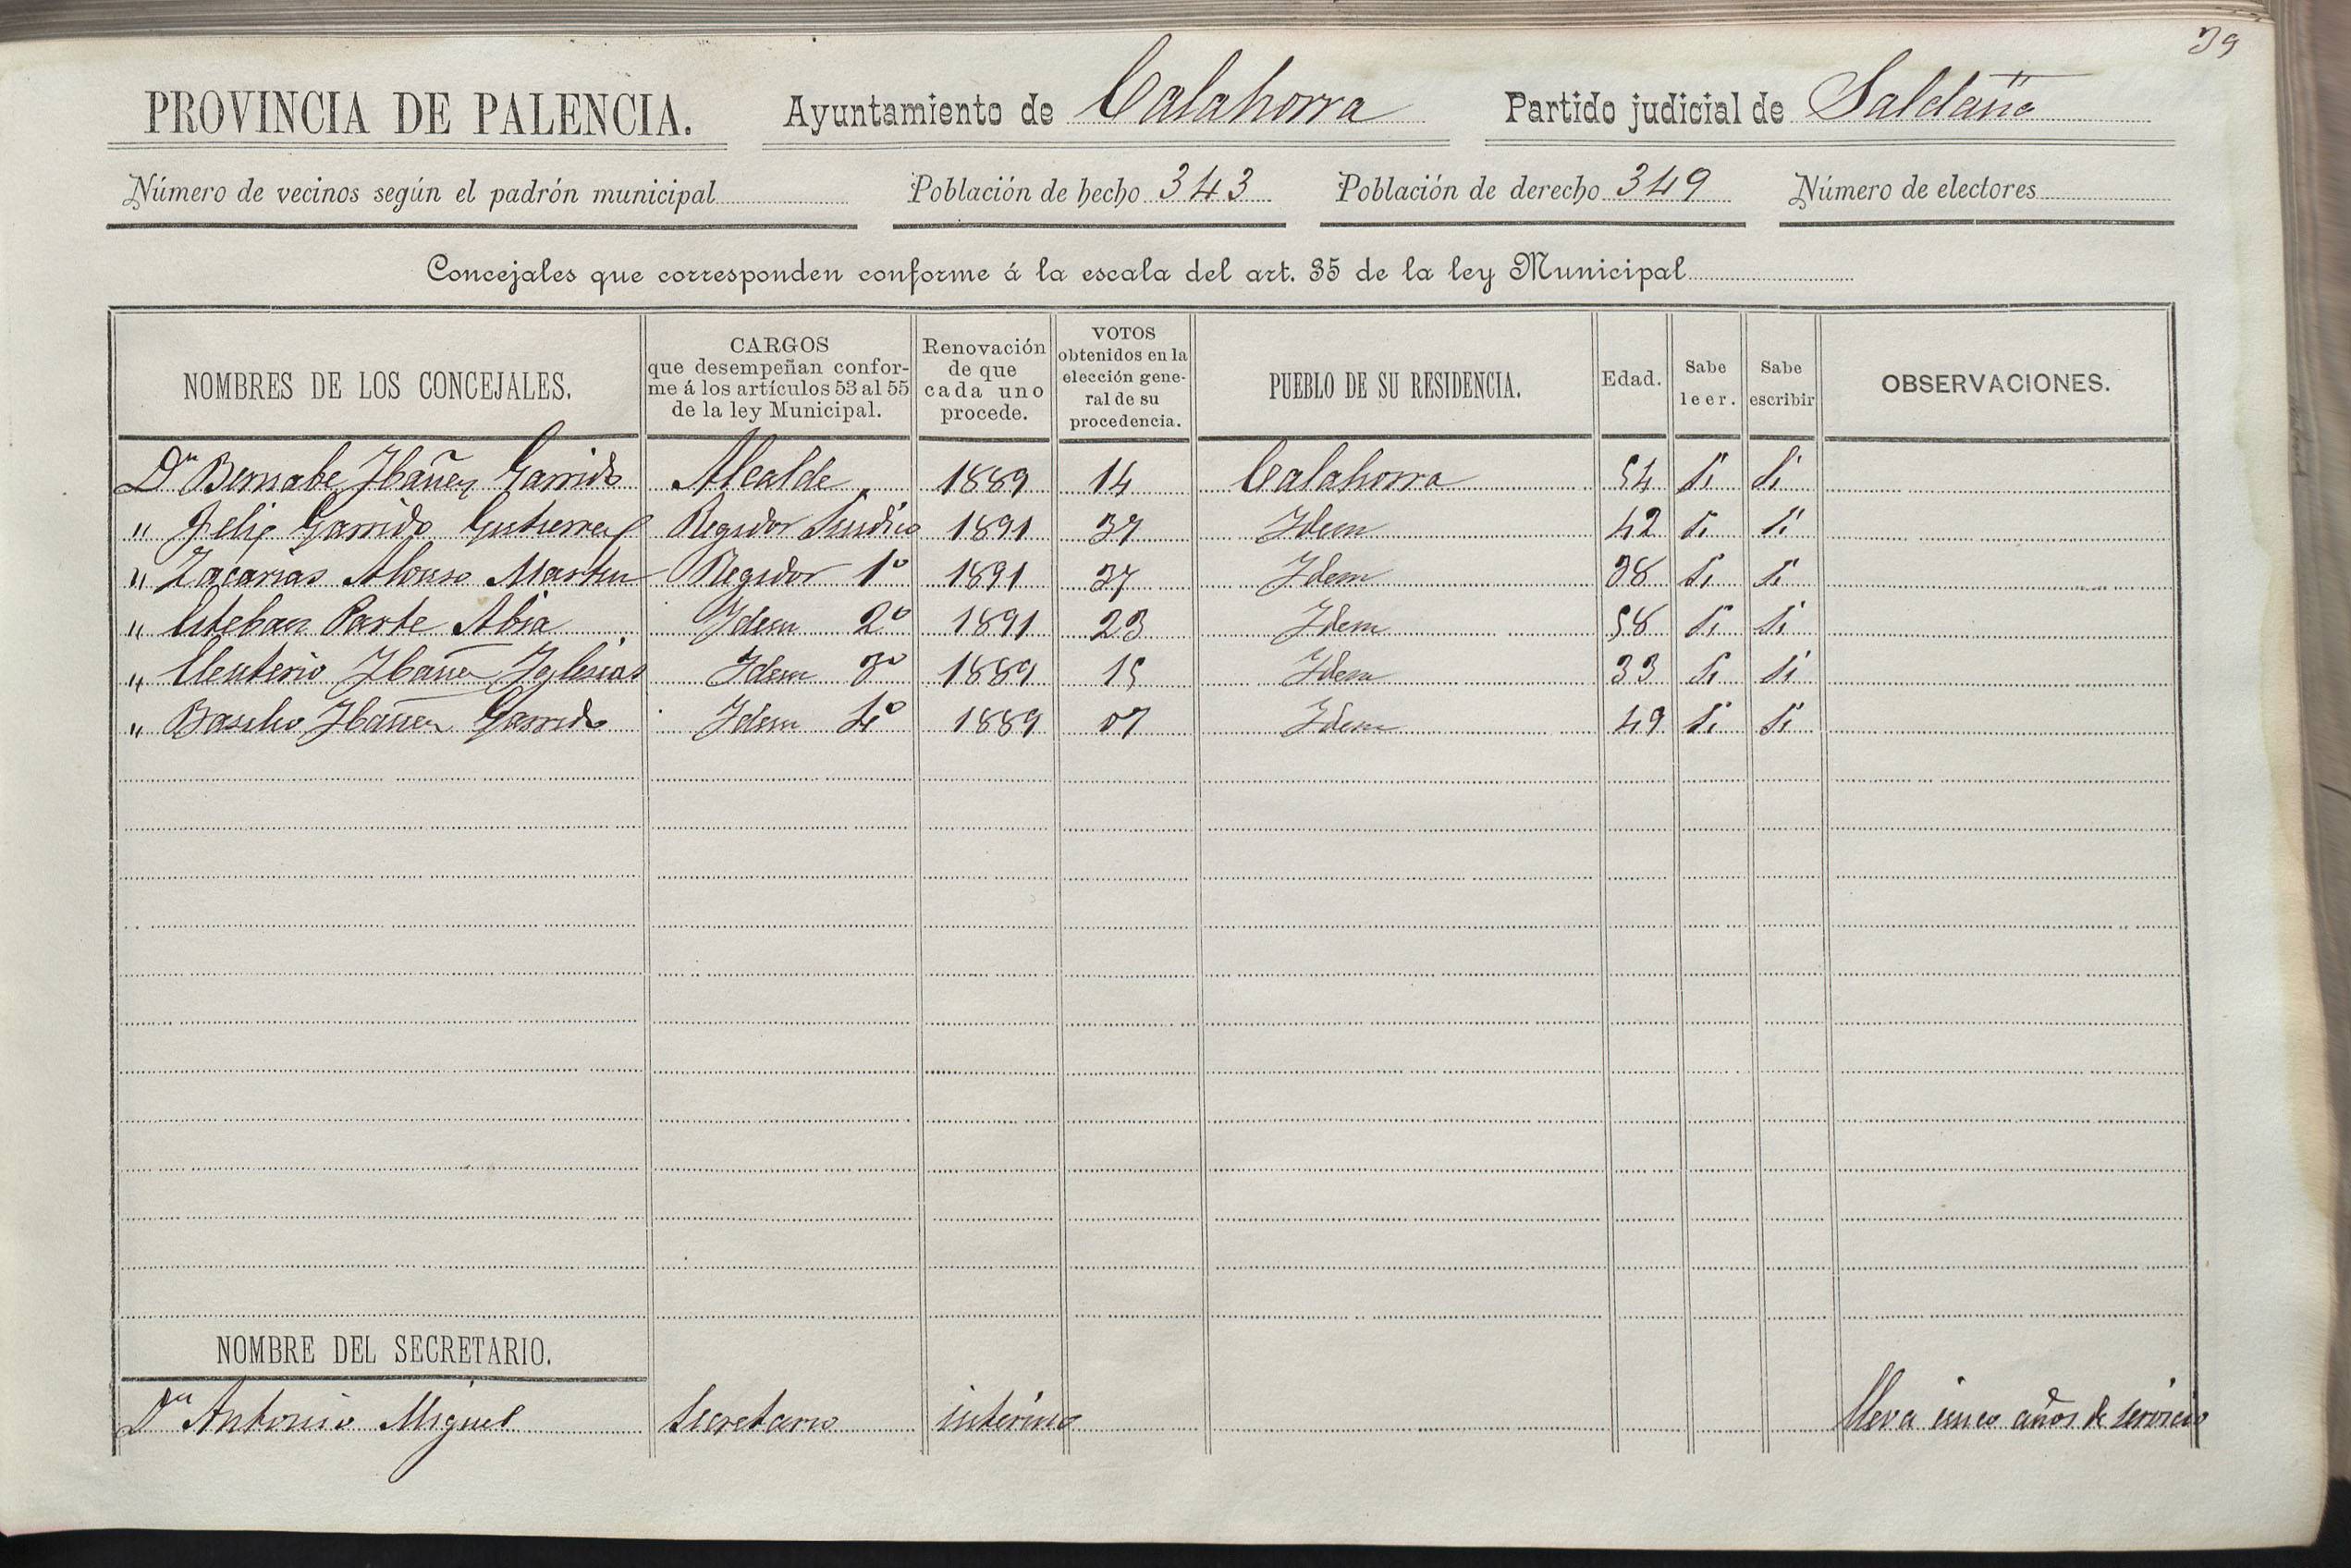 39
PROVINCIA DE PALENCIA. Ayuntamiento de Calahorra Partido judicial de Saldaña
Número de vecinos según el padrón municipal Población de hecho 343 Población de derecho 349 Número de electores
Concejales que corresponden conforme á la escala del art. 35 de la ley Municipal
NOMBRES DE LOS CONCEJALES. CARGOS que desempeñan conforme á los artículos 53 al 55 de la ley Municipal. Renovación de que cada uno procede. VOTOS obtenidos en la elección general de su procedencia. PUEBLO DE SU RESIDENCIA. Edad. Sabe leer. Sabe escribir OBSERVACIONES.
Dn Bernabe Ibañez Garrido Alcalde 1889 14 Calahorra 54 Si Si
" Felix Garrido Gutierrez Regidor Sindico 1891 37 Idem 42 Si Si
" Zacarias Alonso Martin Regidor 1º 1891 37 Idem 38 Si Si
" Esteban Parte Abia Idem 2º 1891 23 Idem 58 Si Si
" Eleuterio Ibañez Iglesias Idem 3º 1889 15 Idem 33 Si Si
" Basilio Ibañez Garrido Idem 4º 1889 07 Idem 49 Si Si
NOMBRE DEL SECRETARIO.
Dn Antonio Miguel Secretario interino lleva cinco años de servicio